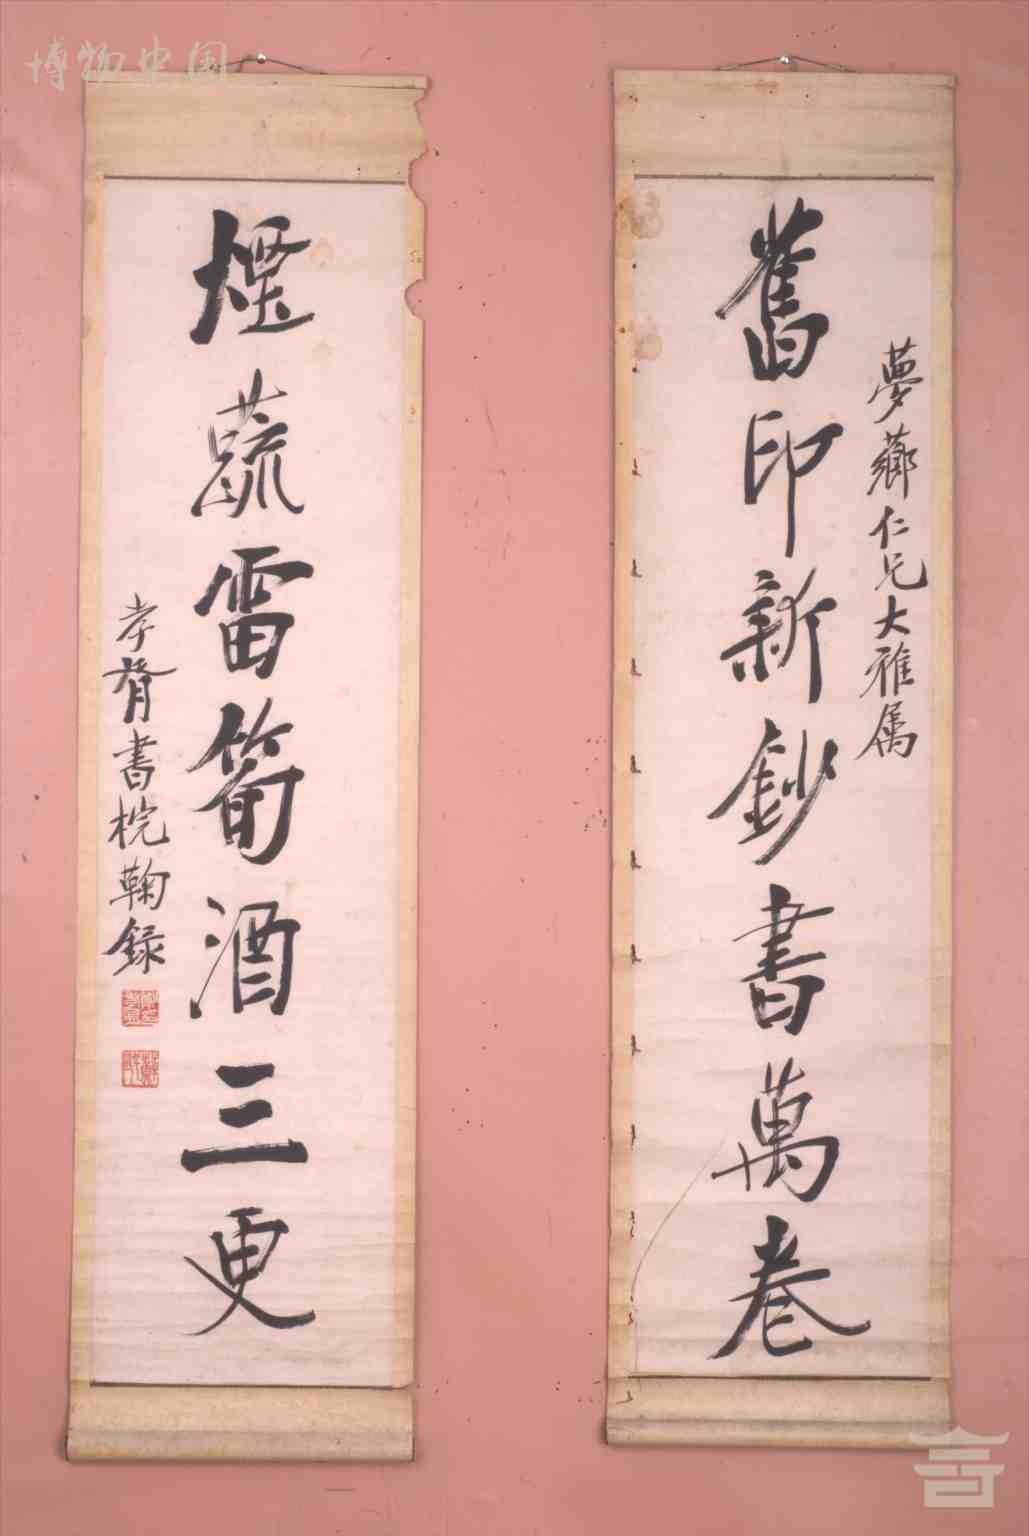 博物中国
夢薌仁兄大雅属
舊印新鈔書萬卷
煙蔬雷筍酒三更
孝胥書梡鞠録